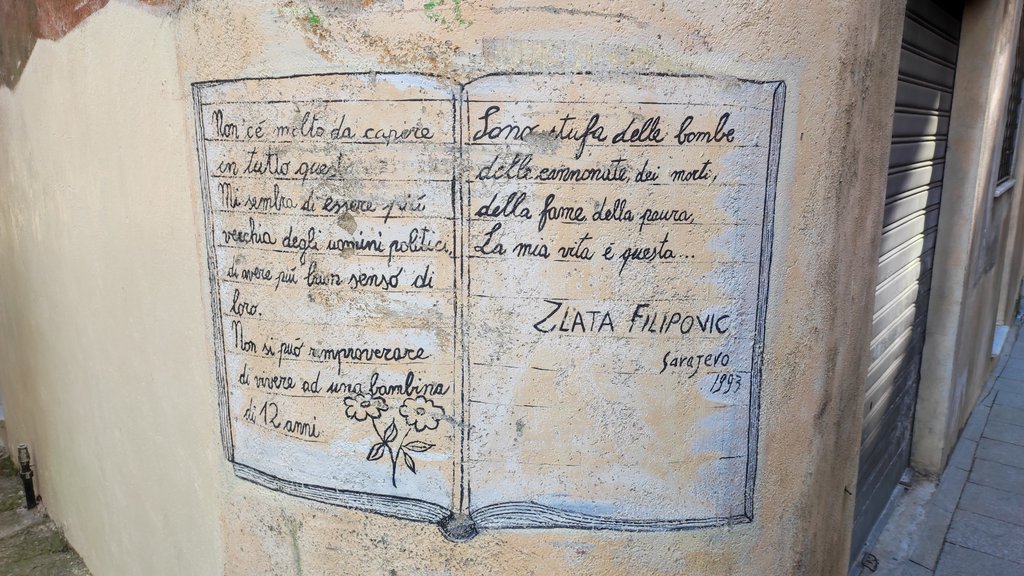 Non c'é molto da capire
in tutto quest
Mi sembra di essere piú
vecchia degli uomini politici,
di avere piú buon senso di
loro.
Non si puó rimproverare
di vivere ad una bambina
di 12 anni.
Sono stufa delle bombe
delle cannonate, dei morti,
della fame della paura,
La mia vita é questa...
ZLATA FILIPOVIC
Sarajevo
1993